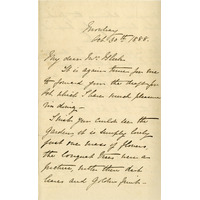 Tuesday
Oct 30th / 1888.
My dear Mrs. Blish
It is again time for me
to forward you the
which I have much pleasure
in doing -
I wish you could see the
Gardens, it is simply lovely
just one mass of flowers
the Loquat Trees here are
picture, with their dark
leaves and Golden fruit -